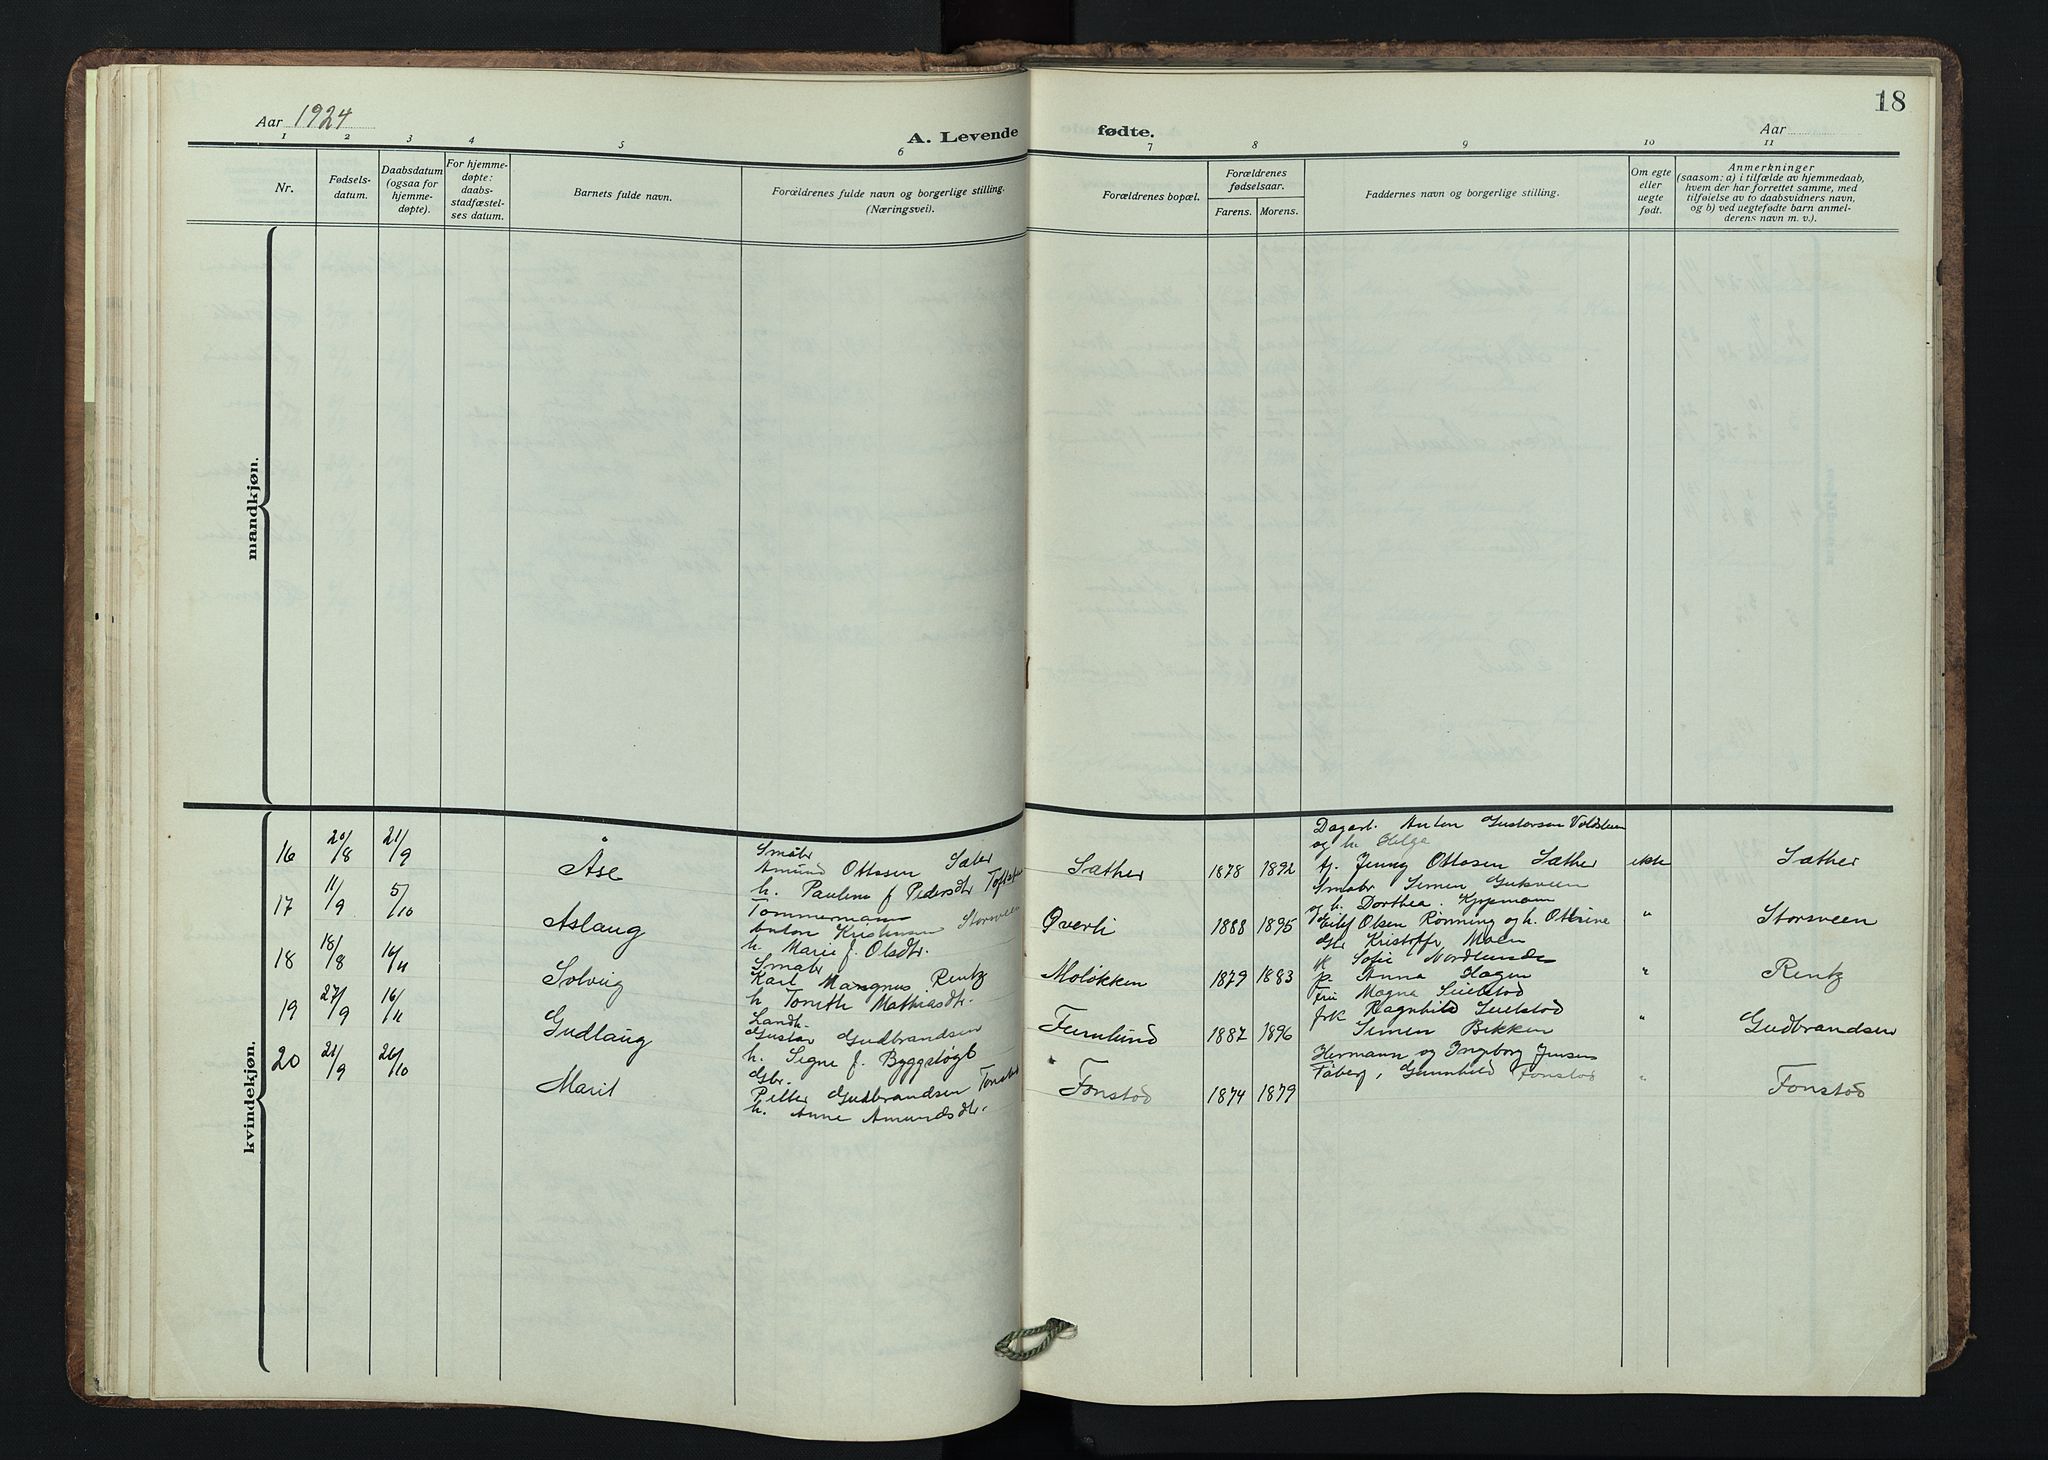 18
Aar 1924
A. Levende fødte.
Aar
1 2 3 4 5 6 7 8 9 10 11
Nr.
Fødsels-
datum.
Daabsdatum
(ogsaa for
hjemme-
døpte).
For hjemme-
døpte:
daabs-
stadfæstel-
ses datum.
Barnets fulde navn.
Forældrenes fulde navn og borgerlige stilling.
(Næringsvei).
Forældrenes bopæl.
Forældrenes
fødselsaar.
Farens. Morens.
Faddernes navn og borgerlige stilling.
Om egte
eller
uegte
født.
Anmerkninger
(saasom: a) i tilfælde av hjemmedaab,
hvem der har forrettet samme, med
tilføielse av to daabsvidners navn,
og b) ved uegtefødte barn anmel-
derens navn m. v.).
mandkjøn.
kvindekjøn.
16 20/8 21/9 Åse
Småbr
Amund Ottosen Sæter
h. Pauline f. Pedersdtr
Sæther 1878 1892
Dagarb. Anton Gustavsen
og h. Helga
tj. Jenny Ottosen Sæther
Småbr Simen
og h. Dorthea.
ekte Sæther
17 11/9 5/10 Aslaug
Tømmermann
Anton Kristiansen Storsveen
h. Marie f. Olsdtr.
Øverli 1888 1895
Eilef Olsen Rønning og h. Ottrine
Gbr Kristoffer Moen
" Storsveen
18 18/8 16/11 Solveig
Småbr
Karl Mangnus Rentz
h. Mathiasdtr.
Moløkken 1879 1883
Sofie
p. Anna Hagen
" Rentz
19 27/9 16/11 Gudlaug
Landh.
Gustav Gudbrandsen
h. Signe f.
1887 1896
Fru Magna Seielstad
frk Ragnhild Seielstad
Simen Bekken
" Gudbrandsen
20 21/9 26/10 Marit
Gbr.
Petter Gudbrandsen
h. Anne Amundsdtr.
Fonstad 1874 1879
Hermann og Ingeborg Jensen
Fåberg, Gunnhild Fonstad
" Fonstad